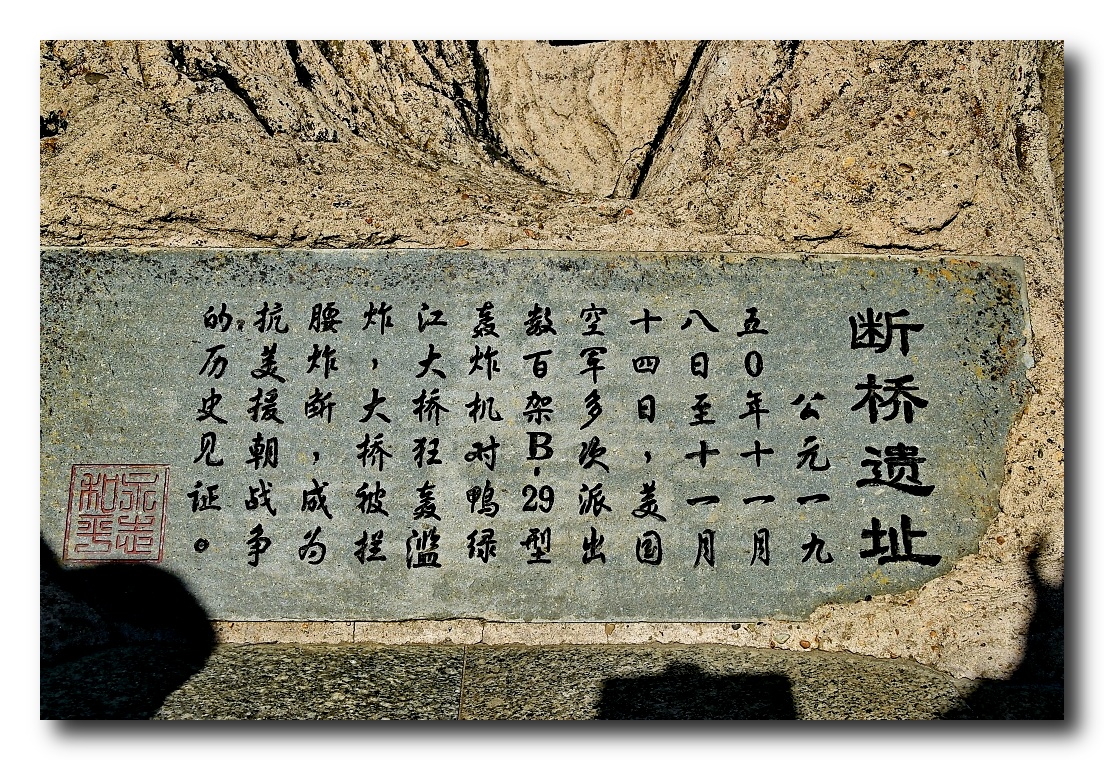 断桥遗址
公元一九
五0年十一月
八日至十一月
十四日，美国
空军多次派出
数百架B-29型
轰炸机对鸭绿
江大桥狂轰滥
炸，大桥被拦
腰炸断，成为
抗美援朝战争
的历史见证。
永志
和平